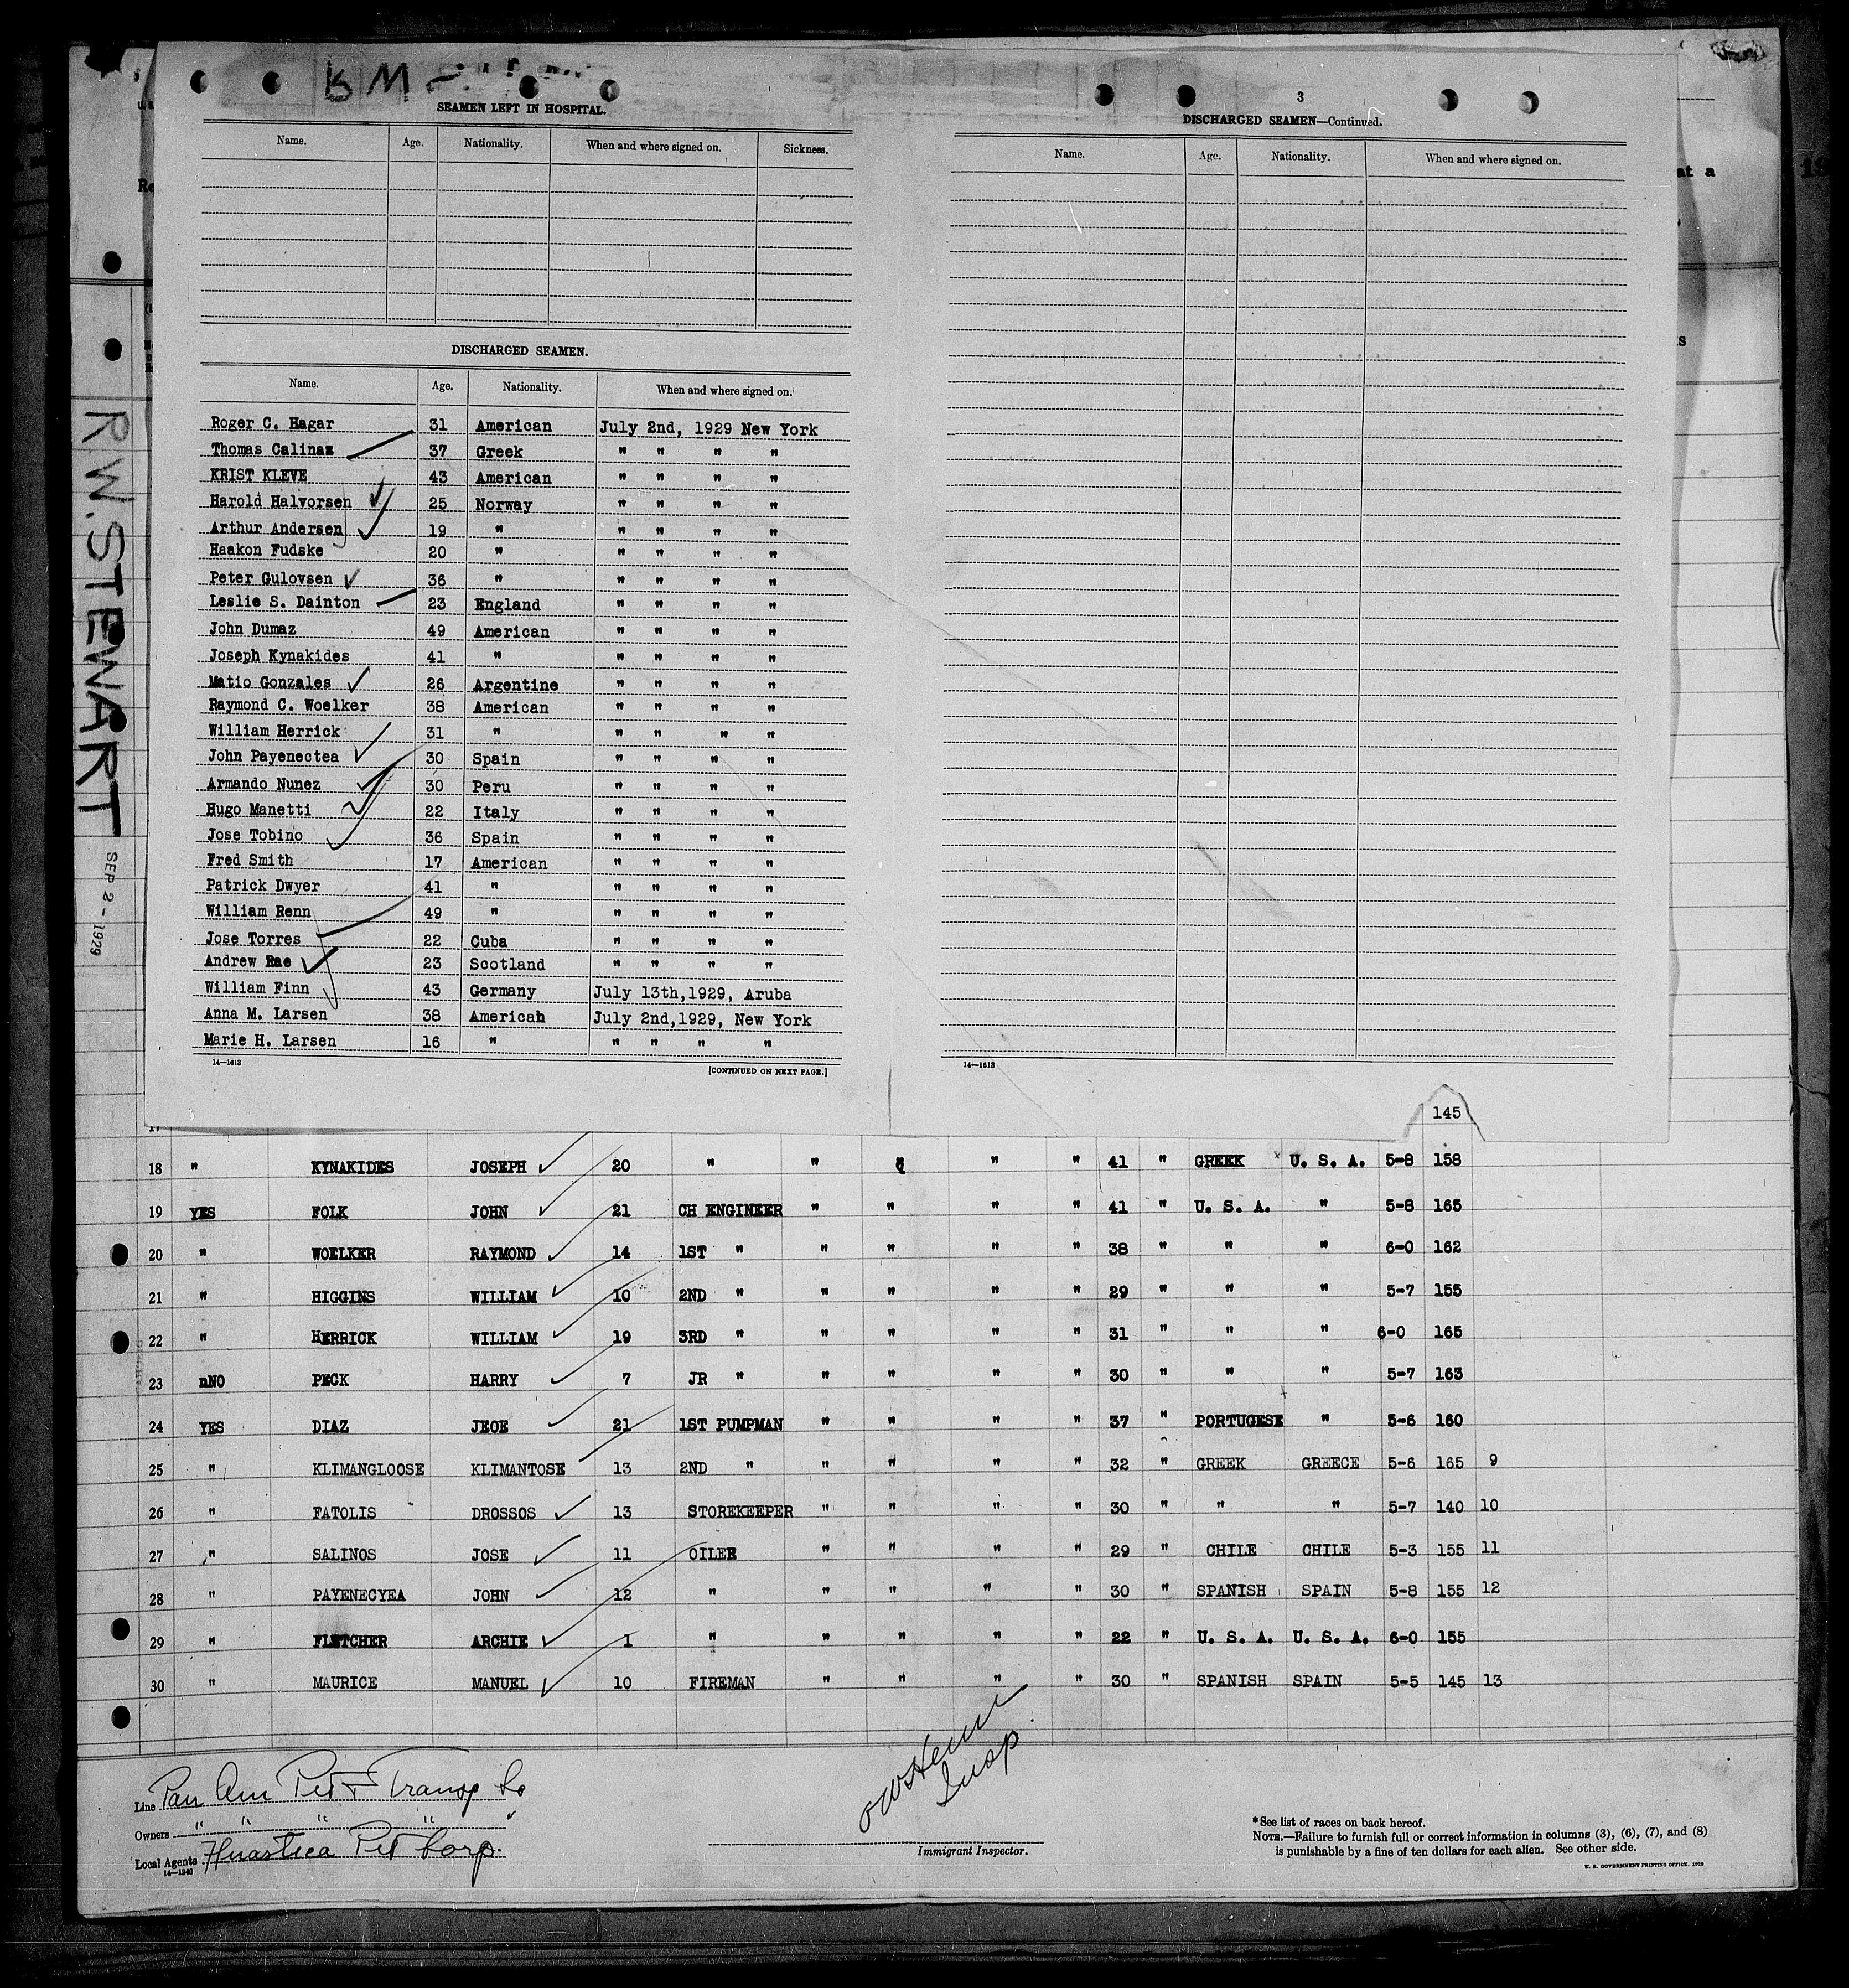 B M -
SEAMEN LEFT IN HOSPITAL.
Name. Age. Nationality. When and where signed on. Sickness.
DISCHARGED SEAMEN.
Name. Age. Nationality. When and where signed on.
Roger C. Hagar 31 American July 2nd, 1929 New York
Thomas Calinas 37 Greek " " " "
KRIST KLEVE 43 American " " " "
Harold Halvorsen 25 Norway " " " "
Arthur Andersen 19 " " " " "
Haakon Fudske 20 " " " " "
Peter Gulovsen 36 " " " " "
Leslie S. Dainton 23 England " " " "
John Dumaz 49 American " " " "
Joseph Kynakides 41 " " " " "
Matio Gonzales 26 Argentine " " " "
Raymond C. Woelker 38 American " " " "
William Herrick 31 " " " " "
John Payenectea 30 Spain " " " "
Armando Nunez 30 Peru " " " "
Hugo Manetti 22 Italy " " " "
Jose Tobino 36 Spain " " " "
Fred Smith 17 American " " " "
Patrick Dwyer 41 " " " " "
William Renn 49 " " " " "
Jose Torres 22 Cuba " " " "
Andrew Rae 23 Scotland " " " "
William Finn 43 Germany July 13th,1929, Aruba
Anna M. Larsen 38 American July 2nd,1929, New York
Marie H. Larsen 16 " " " " "
14—1613 [CONTINUED ON NEXT PAGE.]
3
DISCHARGED SEAMEN—Continued.
Name. Age. Nationality. When and where signed on.
14—1613
at a
R.W. STEWART
SEP 2 - 1929
145
18 " KYNAKIDES JOSEPH 20 " " " " " 41 " GREEK U. S. A. 5-8 158
19 YES FOLK JOHN 21 CH ENGINEER " " " " 41 " U. S. A. " 5-8 165
20 " WOELKER RAYMOND 14 1ST " " " " " 38 " " " 6-0 162
21 " HIGGINS WILLIAM 10 2ND " " " " " 29 " " " 5-7 155
22 " HERRICK WILLIAM 19 3RD " " " " " 31 " " " 6-0 165
23 nNO PECK HARRY 7 JR " " " " " 30 " " " 5-7 163
24 YES DIAZ JEOE 21 1ST PUMPMAN " " " " 37 " PORTUGESE " 5-6 160
25 " KLIMANGLOOSE KLIMANTOSE 13 2ND " " " " " 32 " GREEK GREECE 5-6 165 9
26 " FATOLIS DROSSOS 13 STOREKEEPER " " " " 30 " " " 5-7 140 10
27 " SALINOS JOSE 11 OILER " " " " 29 " CHILE CHILE 5-3 155 11
28 " PAYENECYEA JOHN 12 " " " " " 30 " SPANISH SPAIN 5-8 155 12
29 " FLETCHER ARCHIE 1 " " " " " 22 " U. S. A. U. S. A. 6-0 155
30 " MAURICE MANUEL 10 FIREMAN " " " " 30 " SPANISH SPAIN 5-5 145 13
Line Pan Am Pet & Transp Co
Owners " " " " "
Local Agents Huasteca Pet Corp.
14—1240
Insp
Immigrant Inspector.
*See list of races on back hereof.
NOTE.—Failure to furnish full or correct information in columns (3), (6), (7), and (8)
is punishable by a fine of ten dollars for each alien. See other side.
U. S. GOVERNMENT PRINTING OFFICE. 1929